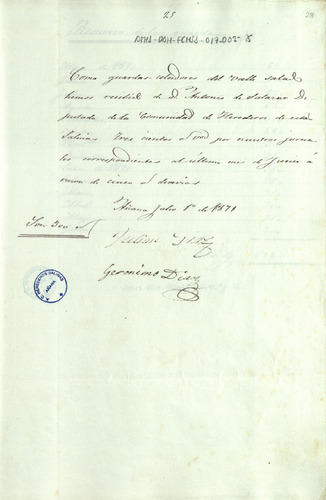 25
28
Como guardas celadores del Valle salado
hemos recibido de D. Antonio de Salazar Di-
putado de la Comunidad de Herederos de estas
Salinas Tres cientos rs vn por nuestros jorna-
les correspondientes al último mes de Junio á
razon de cinco rs diarios
Añana Julio 1º de 1871
Son 300 rs
Geronimo Diaz